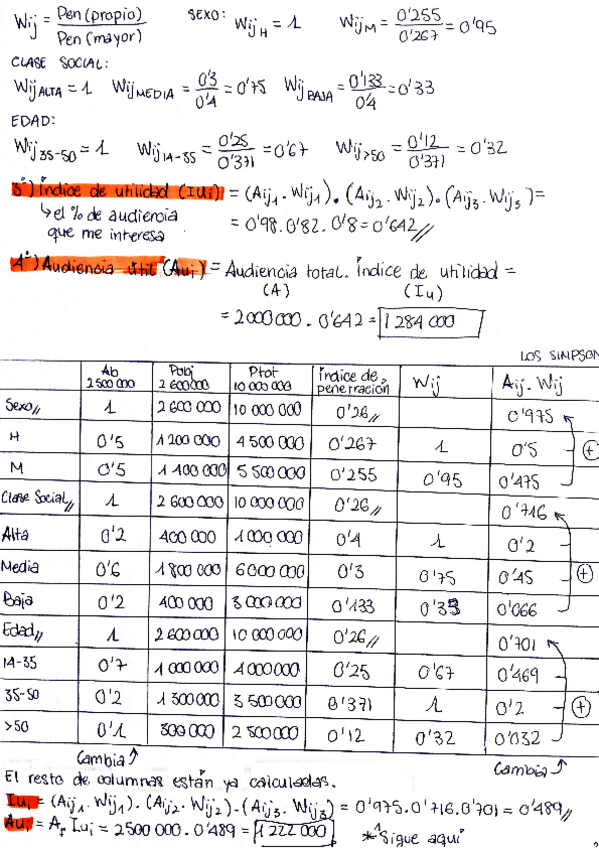 Wij = Pen(propio) / Pen(mayor) SEXO: WijH = 1 WijM = 0'255 / 0'267 = 0'95
CLASE SOCIAL:
WijALTA = 1 WijMEDIA = 0'3 / 0'4 = 0'75 WijBAJA = 0'133 / 0'4 = 0'33
EDAD:
Wij35-50 = 1 Wij14-35 = 0'25 / 0'371 = 0'67 Wij>50 = 0'12 / 0'371 = 0'32
3º) Índice de utilidad (IUi) = (Aij1 . Wij1) . (Aij2 . Wij2) . (Aij3 . Wij3) =
↳ el % de audiencia = 0'98 . 0'82 . 0'8 = 0'642//
que me interesa
4º) Audiencia útil (Aui) = Audiencia total . Índice de utilidad =
(A) (Iu)
= 2000000 . 0'642 = 1 284 000
LOS SIMPSON
Ab 2 500 000 Pobj 2 600 000 Ptot 10 000 000 Índice de penetración Wij Aij . Wij
Sexo// 1 2 600 000 10 000 000 0'26// 0'975
H 0'5 1 200 000 4 500 000 0'267 1 0'5 +
M 0'5 1 400 000 5 500 000 0'255 0'95 0'475
Clase Social// 1 2 600 000 10 000 000 0'26// 0'716
Alta 0'2 400 000 1 000 000 0'4 1 0'2
Media 0'6 1 800 000 6 000 000 0'3 0'75 0'45 +
Baja 0'2 400 000 3 000 000 0'133 0'33 0'066
Edad// 1 2 600 000 10 000 000 0'26// 0'701
14-35 0'7 1 000 000 4 000 000 0'25 0'67 0'469
35-50 0'2 1 300 000 3 500 000 0'371 1 0'2 +
>50 0'1 300 000 2 500 000 0'12 0'32 0'032
Cambia Cambia
El resto de columnas están ya calculadas.
Iui = (Aij1 . Wij1) . (Aij2 . Wij2) . (Aij3 . Wij3) = 0'975 . 0'716 . 0'701 = 0'489//
Aui = A . Iui = 2500 000 . 0'489 = 1 222 000 *1 Sigue aquí